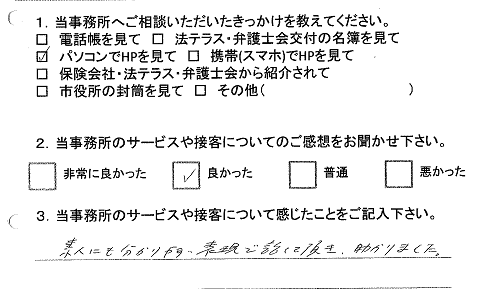 1. 当事務所へご相談いただいたきっかけを教えてください。
□ 電話帳を見て □ 法テラス・弁護士会交付の名簿を見て
☑ パソコンでHPを見て □ 携帯(スマホ)でHPを見て
□ 保険会社・法テラス・弁護士会から紹介されて
□ 市役所の封筒を見て □ その他( )
2. 当事務所のサービスや接客についてのご感想をお聞かせ下さい。
□ 非常に良かった ☑ 良かった □ 普通 □ 悪かった
3. 当事務所のサービスや接客について感じたことをご記入下さい。
素人にも分かりやすい表現で話して頂き、助かりました。